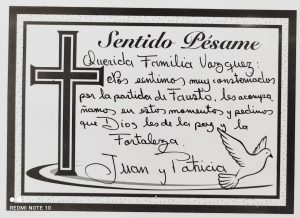 Sentido Pésame
Querida Familia Vazquez:
Nos sentimos muy consternados
por la partida de Fausto, les acompa
ñamos en estos momentos y pedimos
que Dios les de la paz y la
Fortaleza.
Juan y Patricia
REDMI NOTE 10